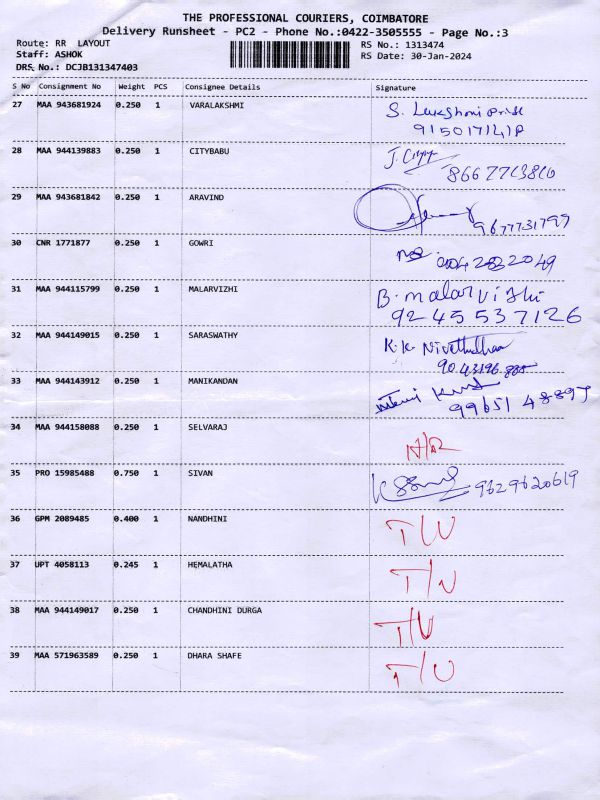 THE PROFESSIONAL COURIERS, COIMBATORE
Delivery Runsheet - PC2 - Phone No.:0422-3505555 - Page No.:3
Route: RR LAYOUT
Staff: ASHOK
DRS No.: DCJB131347403
RS No.: 1313474
RS Date: 30-Jan-2024
S No Consignment No Weight PCS Consignee Details Signature
27 MAA 943681924 0.250 1 VARALAKSHMI
28 MAA 944139883 0.250 1 CITYBABU
29 MAA 943681842 0.250 1 ARAVIND
9677731799
30 CNR 1771877 0.250 1 GOWRI
31 MAA 944115799 0.250 1 MALARVIZHI B. malarvizhi
9245537126
32 MAA 944149015 0.250 1 SARASWATHY K.K.
33 MAA 944143912 0.250 1 MANIKANDAN
99651 48897
34 MAA 944158088 0.250 1 SELVARAJ
35 PRO 15985488 0.750 1 SIVAN 9629620619
36 GPM 2089485 0.400 1 NANDHINI T/U
37 UPT 4058113 0.245 1 HEMALATHA T/U
38 MAA 944149017 0.250 1 CHANDHINI DURGA T/U
39 MAA 571963589 0.250 1 DHARA SHAFE T/U